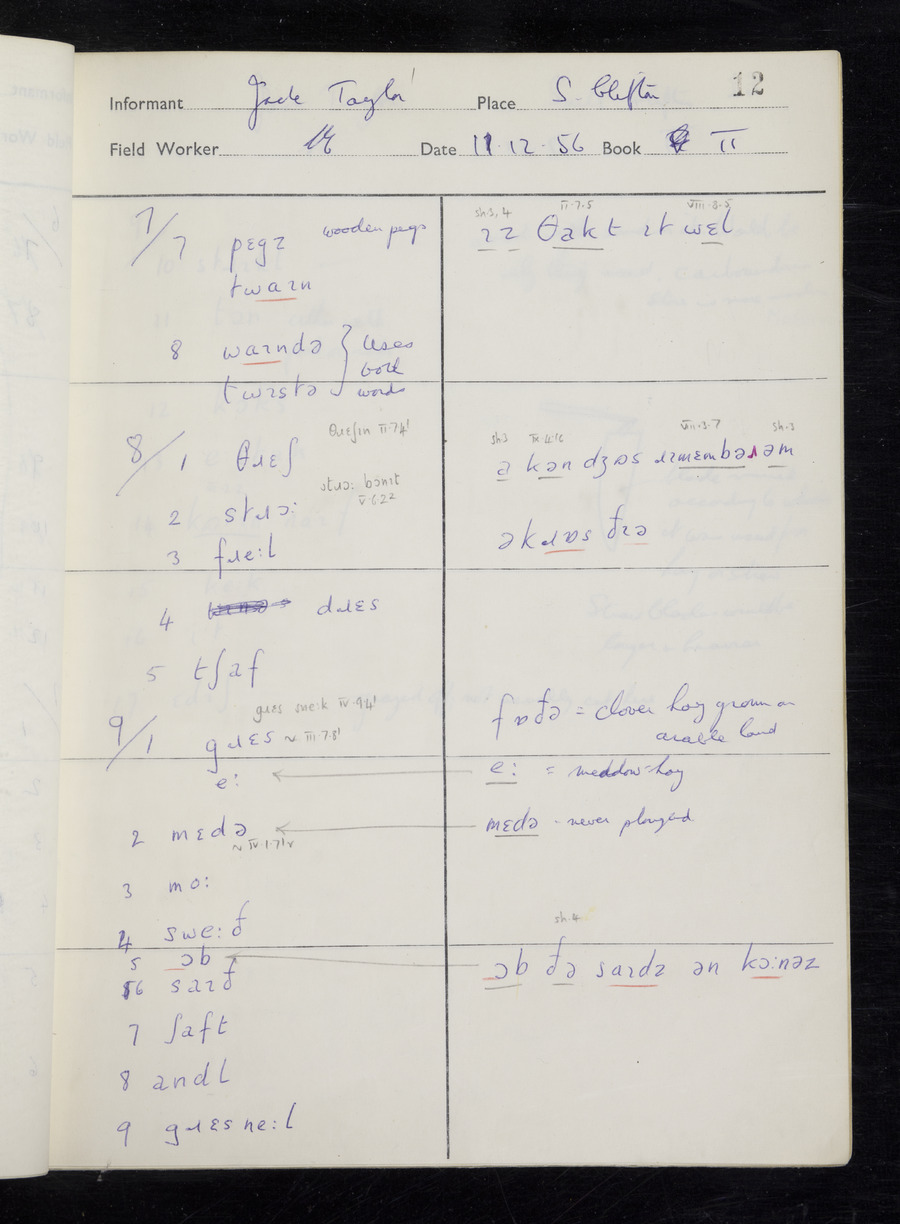 12
Informant Jack Taylor Place S. Clifton
Field Worker Date 11.12.56 Book II
7/7 pɛgz wooden pegs
twaɪn
8 waɪndə } uses
both
twɪstə words
sh.3, 4 II.7.5 VIII.3.5
ɪz θakt ɪt wɛl
θɹɛʃɪn II.7.4
8/1 θɹɛʃ
stɹɔ: bɔnɪt
V.6.22
2 stɹɔ:
3 fɹe:l
sh.3 IX.4.16 VIII.3.7 sh.3
a kən dʒɒs ɹɪmɛmbəɹəm
əkɹɒs ðɪə
4 dɹɛs
5 tʃaf
gɹɛs sne:k IV.9.4
9/1 gɹɛs ~ III.7.8
e:
2 mɛdə
~ IV.1.7
3 mo:
4 swe:ð
5 ɔb
6 saɪð
7 ʃaft
8 andl
9 gɹɛsne:l
fɒðə = clover hay grown on
arable land
e: = meddow-hay
mɛdə - never ploughed
sh.4
ɔb ðə saɪdz ən kɔ:nəz